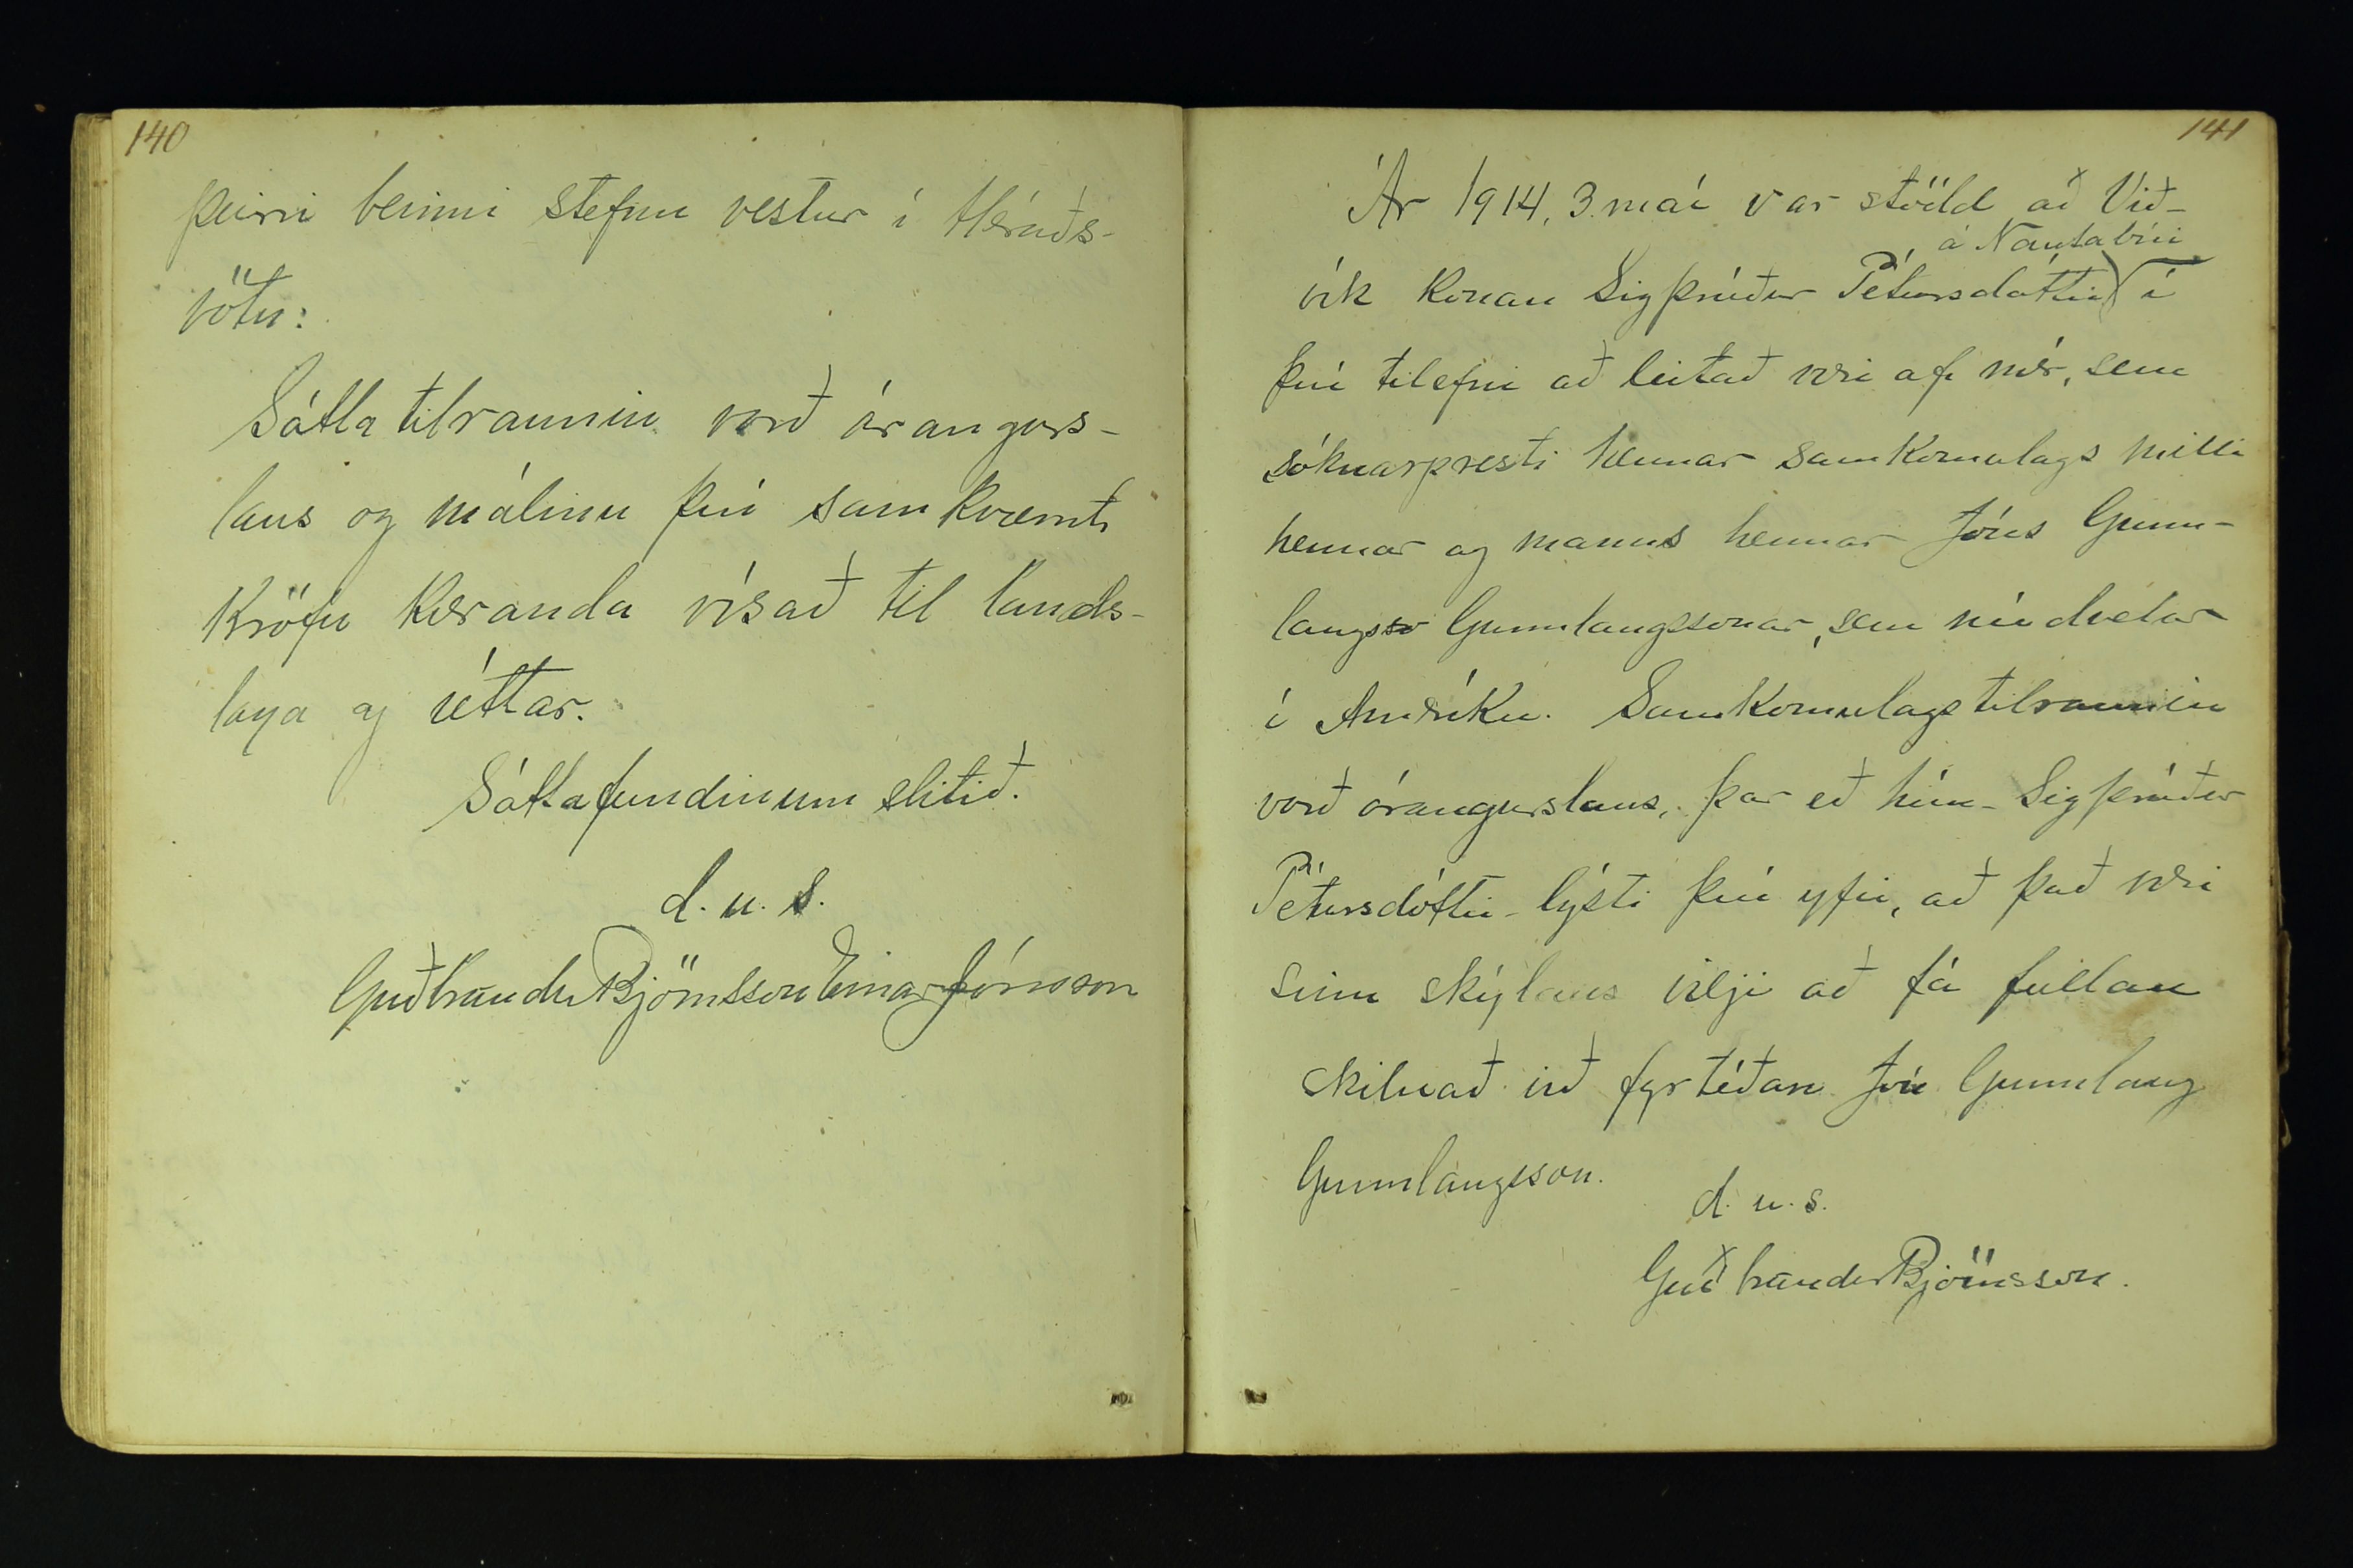 140
þeirri beinni stefnu vestur í Héraðs-
vötn:
Sáttatilraunin varð árangurs-
laus og málinu því samkvæmt
kröfu kæranda vísað til lands-
laga og réttar.
Sáttafundinum slitið.
d. u. s.
Guðbrandur Björnsson Einar Jónsson
141
Ár 1914, 3. maí var stödd að Við-
á Nautabúi
vík konan Sigþrúður Pétursdóttir í
því tilefni að leitað væri af mér, sem
sóknarpresti hennar samkomulags milli
hennar og manns hennar Jóns Gunn-
laugs Gunnlaugssonar, sem nú dvelur
í Ameríku. Samkomulagstilraunin
varð árangurslaus, þar eð hún - Sigþrúður
Pétursdóttir - lýsti því yfir, að það væri
sinn skýlaus vilji að fá fullan
skilnað við fyrtéðan Jón Gunnlaug
Gunnlaugsson.
d. u. s.
Guðbrandur Björnsson.